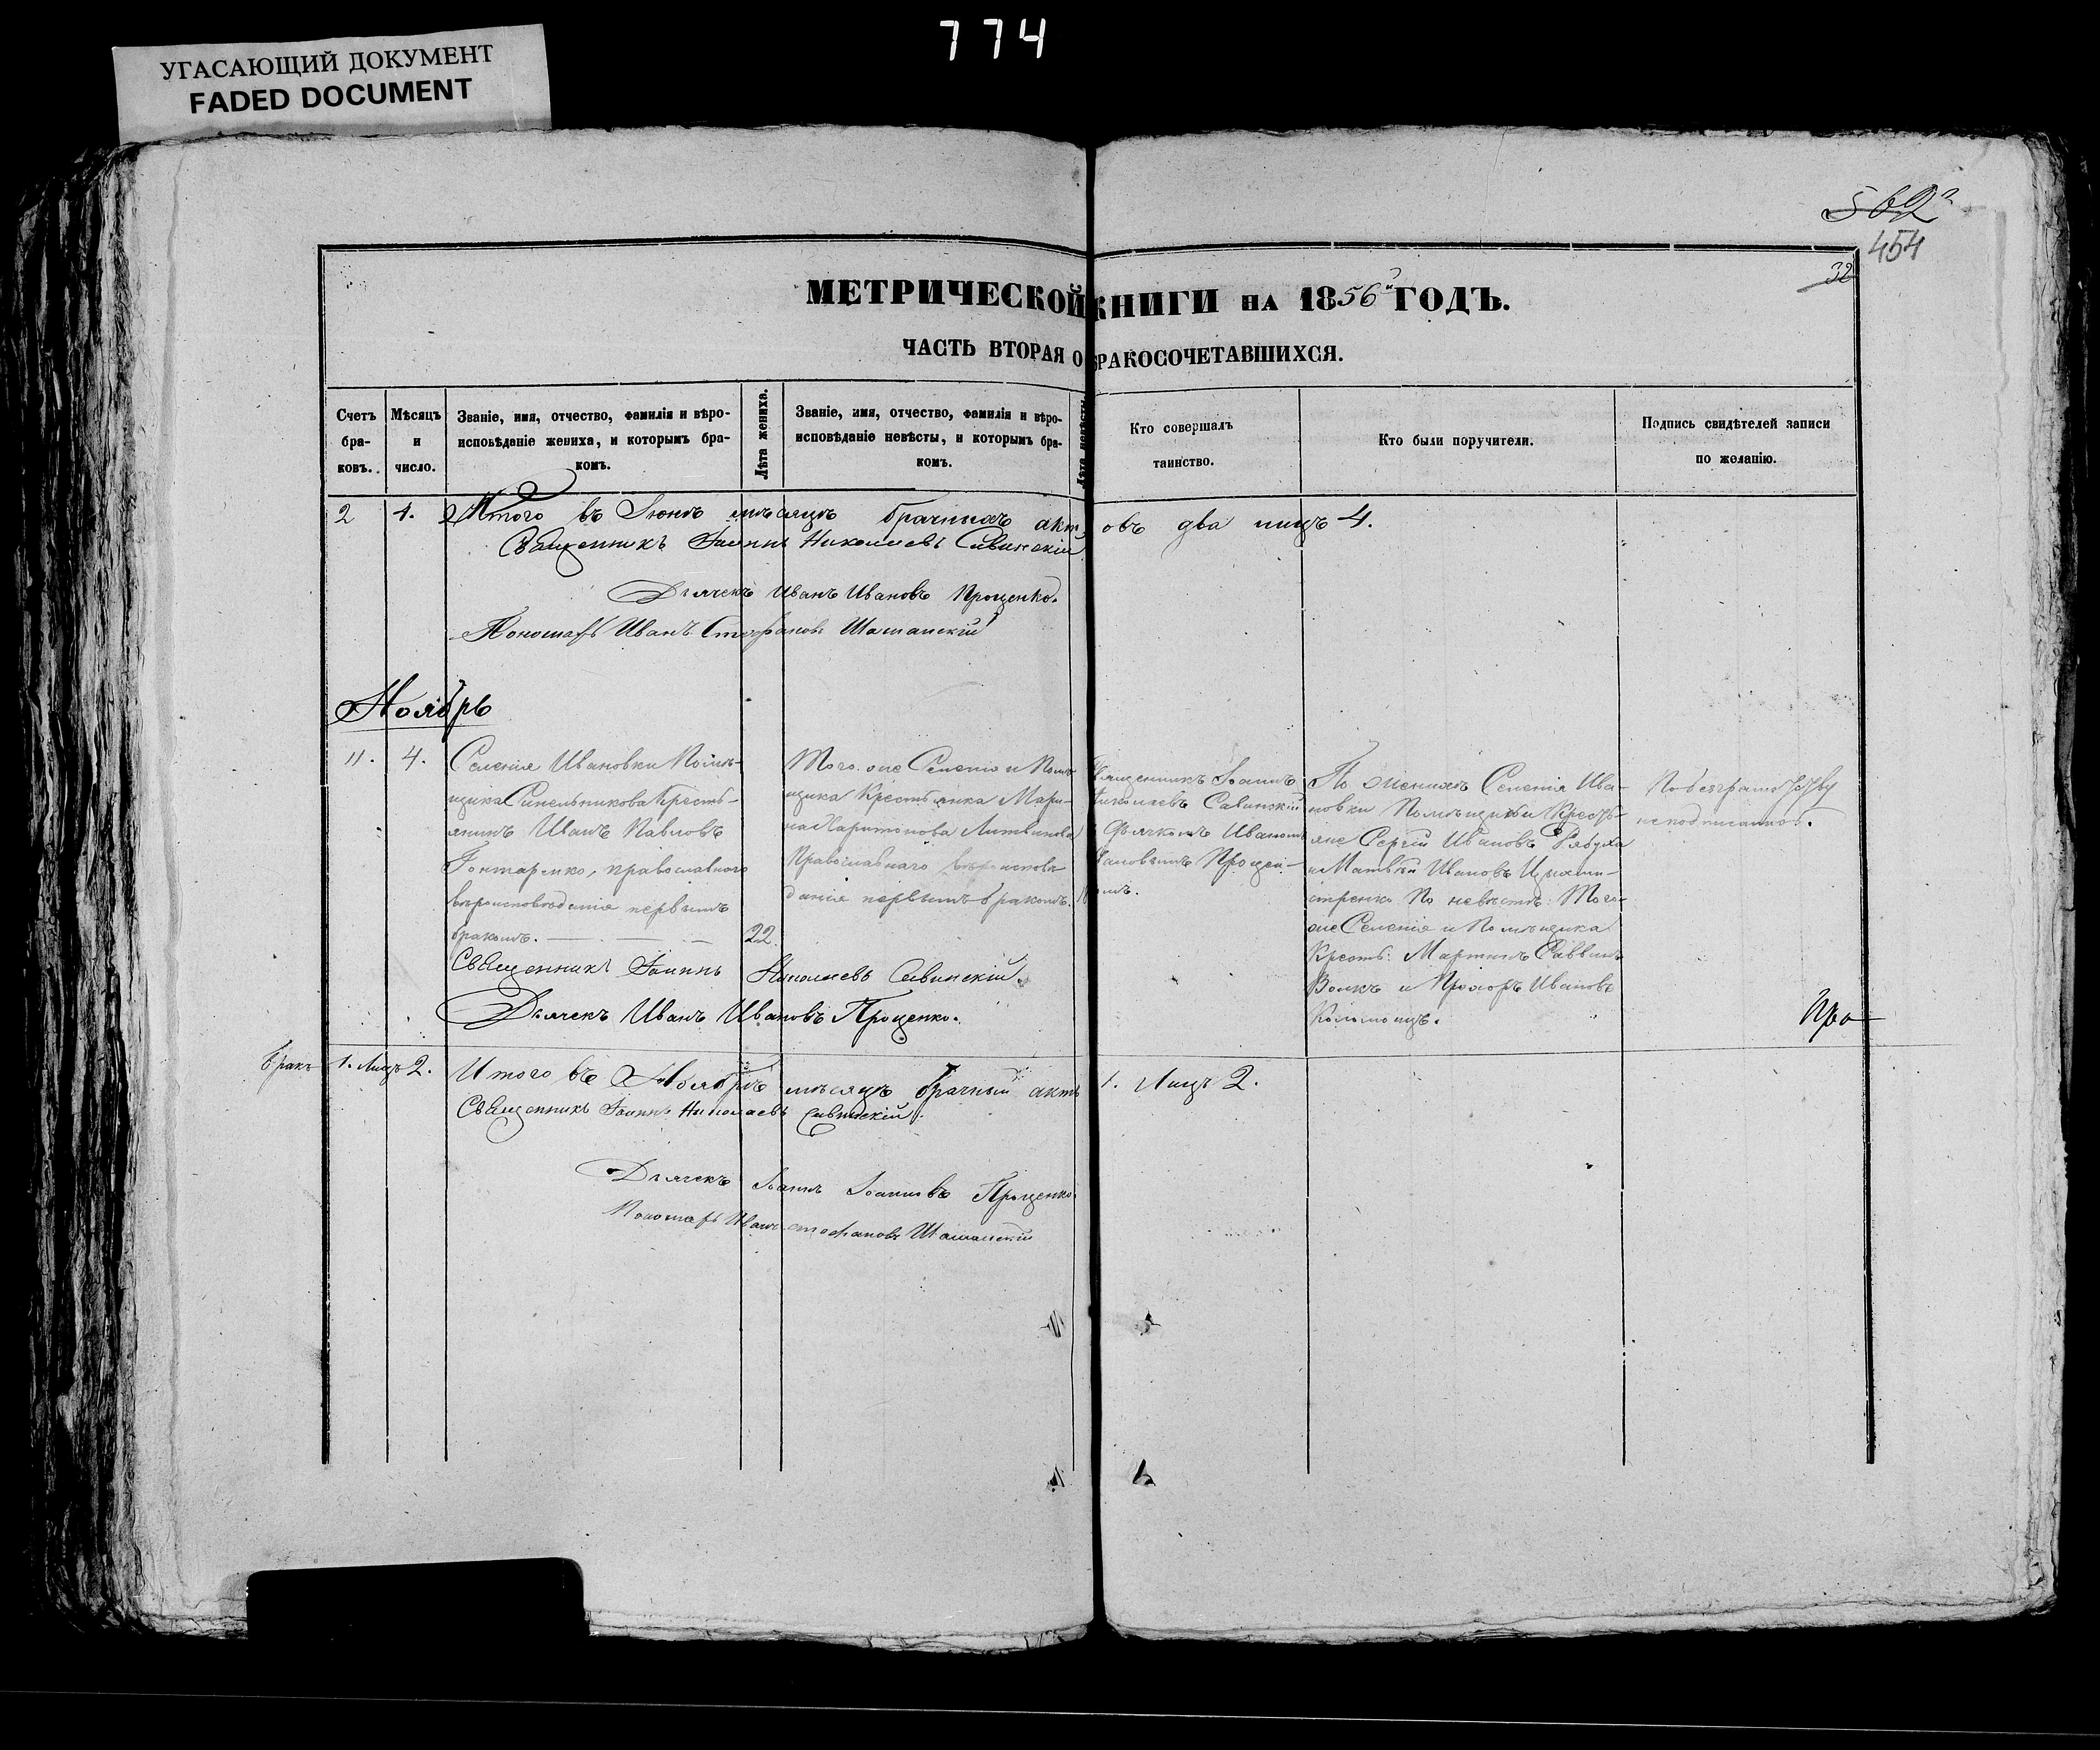 774
УГАСАЮЩИЙ ДОКУМЕНТ
FADED DOCUMENT
562
454
32
МЕТРИЧЕСКОЙ КНИГИ НА 1856й ГОДЪ.
ЧАСТЬ ВТОРАЯ О БРАКОСОЧЕТАВШИХСЯ.
Счетъ бра- ковъ.
Мѣсяцъ и число.
Званіе, имя, отчество, фамилія и вѣро-
исповѣданіе жениха, и которымъ бра-
комъ.
Лѣта жениха.
Званіе, имя, отчество, фамилія и вѣро-
исповѣданіе невѣсты, и которымъ бра-
комъ.
Лѣта невѣсты
Кто совершалъ
таинство.
Кто были поручители.
Подпись свидѣтелей записи
по желанію.
2 4. Итого въ Іюнѣ мѣсяцѣ брачныхъ актовъ два лицъ 4.
Священникъ Іоаннъ Николаевъ Савинскій
Дьячекъ Иванъ Ивановъ Проценко.
Пономарь Иванъ Стефановъ
Ноябрь
11. 4.
Селенія Ивановки Помѣ-
щика Синельникова Кресть-
янинъ Иванъ Павловъ
Гонтаренко, православнаго
вѣроисповѣданія первымъ
бракомъ.
22
Того же Селенія и Помѣ-
щика Крестьянка Мари-
на Харитонова Литвинова
Православнаго вѣроисповѣ-
данія первымъ бракомъ.
Священникъ Іоаннъ
Николаевъ Савинскій
Дьячкомъ Иваномъ
Ивановымъ Процен-
По женихѣ Селенія Ива-
новки Помѣщика Кресть-
яне Сергій Ивановъ Рябуха
и Матвѣй Ивановъ
По невѣстѣ: Того-
же Селенія и Помѣщика
Крест: Мартинъ Саввинъ
Волкъ и Прохоръ Ивановъ
Коломоецъ.
По безграмотству
неподписались.
Священникъ Іоаннъ Николаевъ Савинскій.
Дьячекъ Иванъ Ивановъ Проценко.
Про
бракъ 1. Лицъ 2. Итого въ Ноябрѣ мѣсяцѣ брачный актъ 1. Лицъ 2.
Священникъ Іоаннъ Николаевъ Савинскій.
Дьячекъ Іоаннъ Іоанновъ Проценко
Пономарь Иванъ Стефановъ